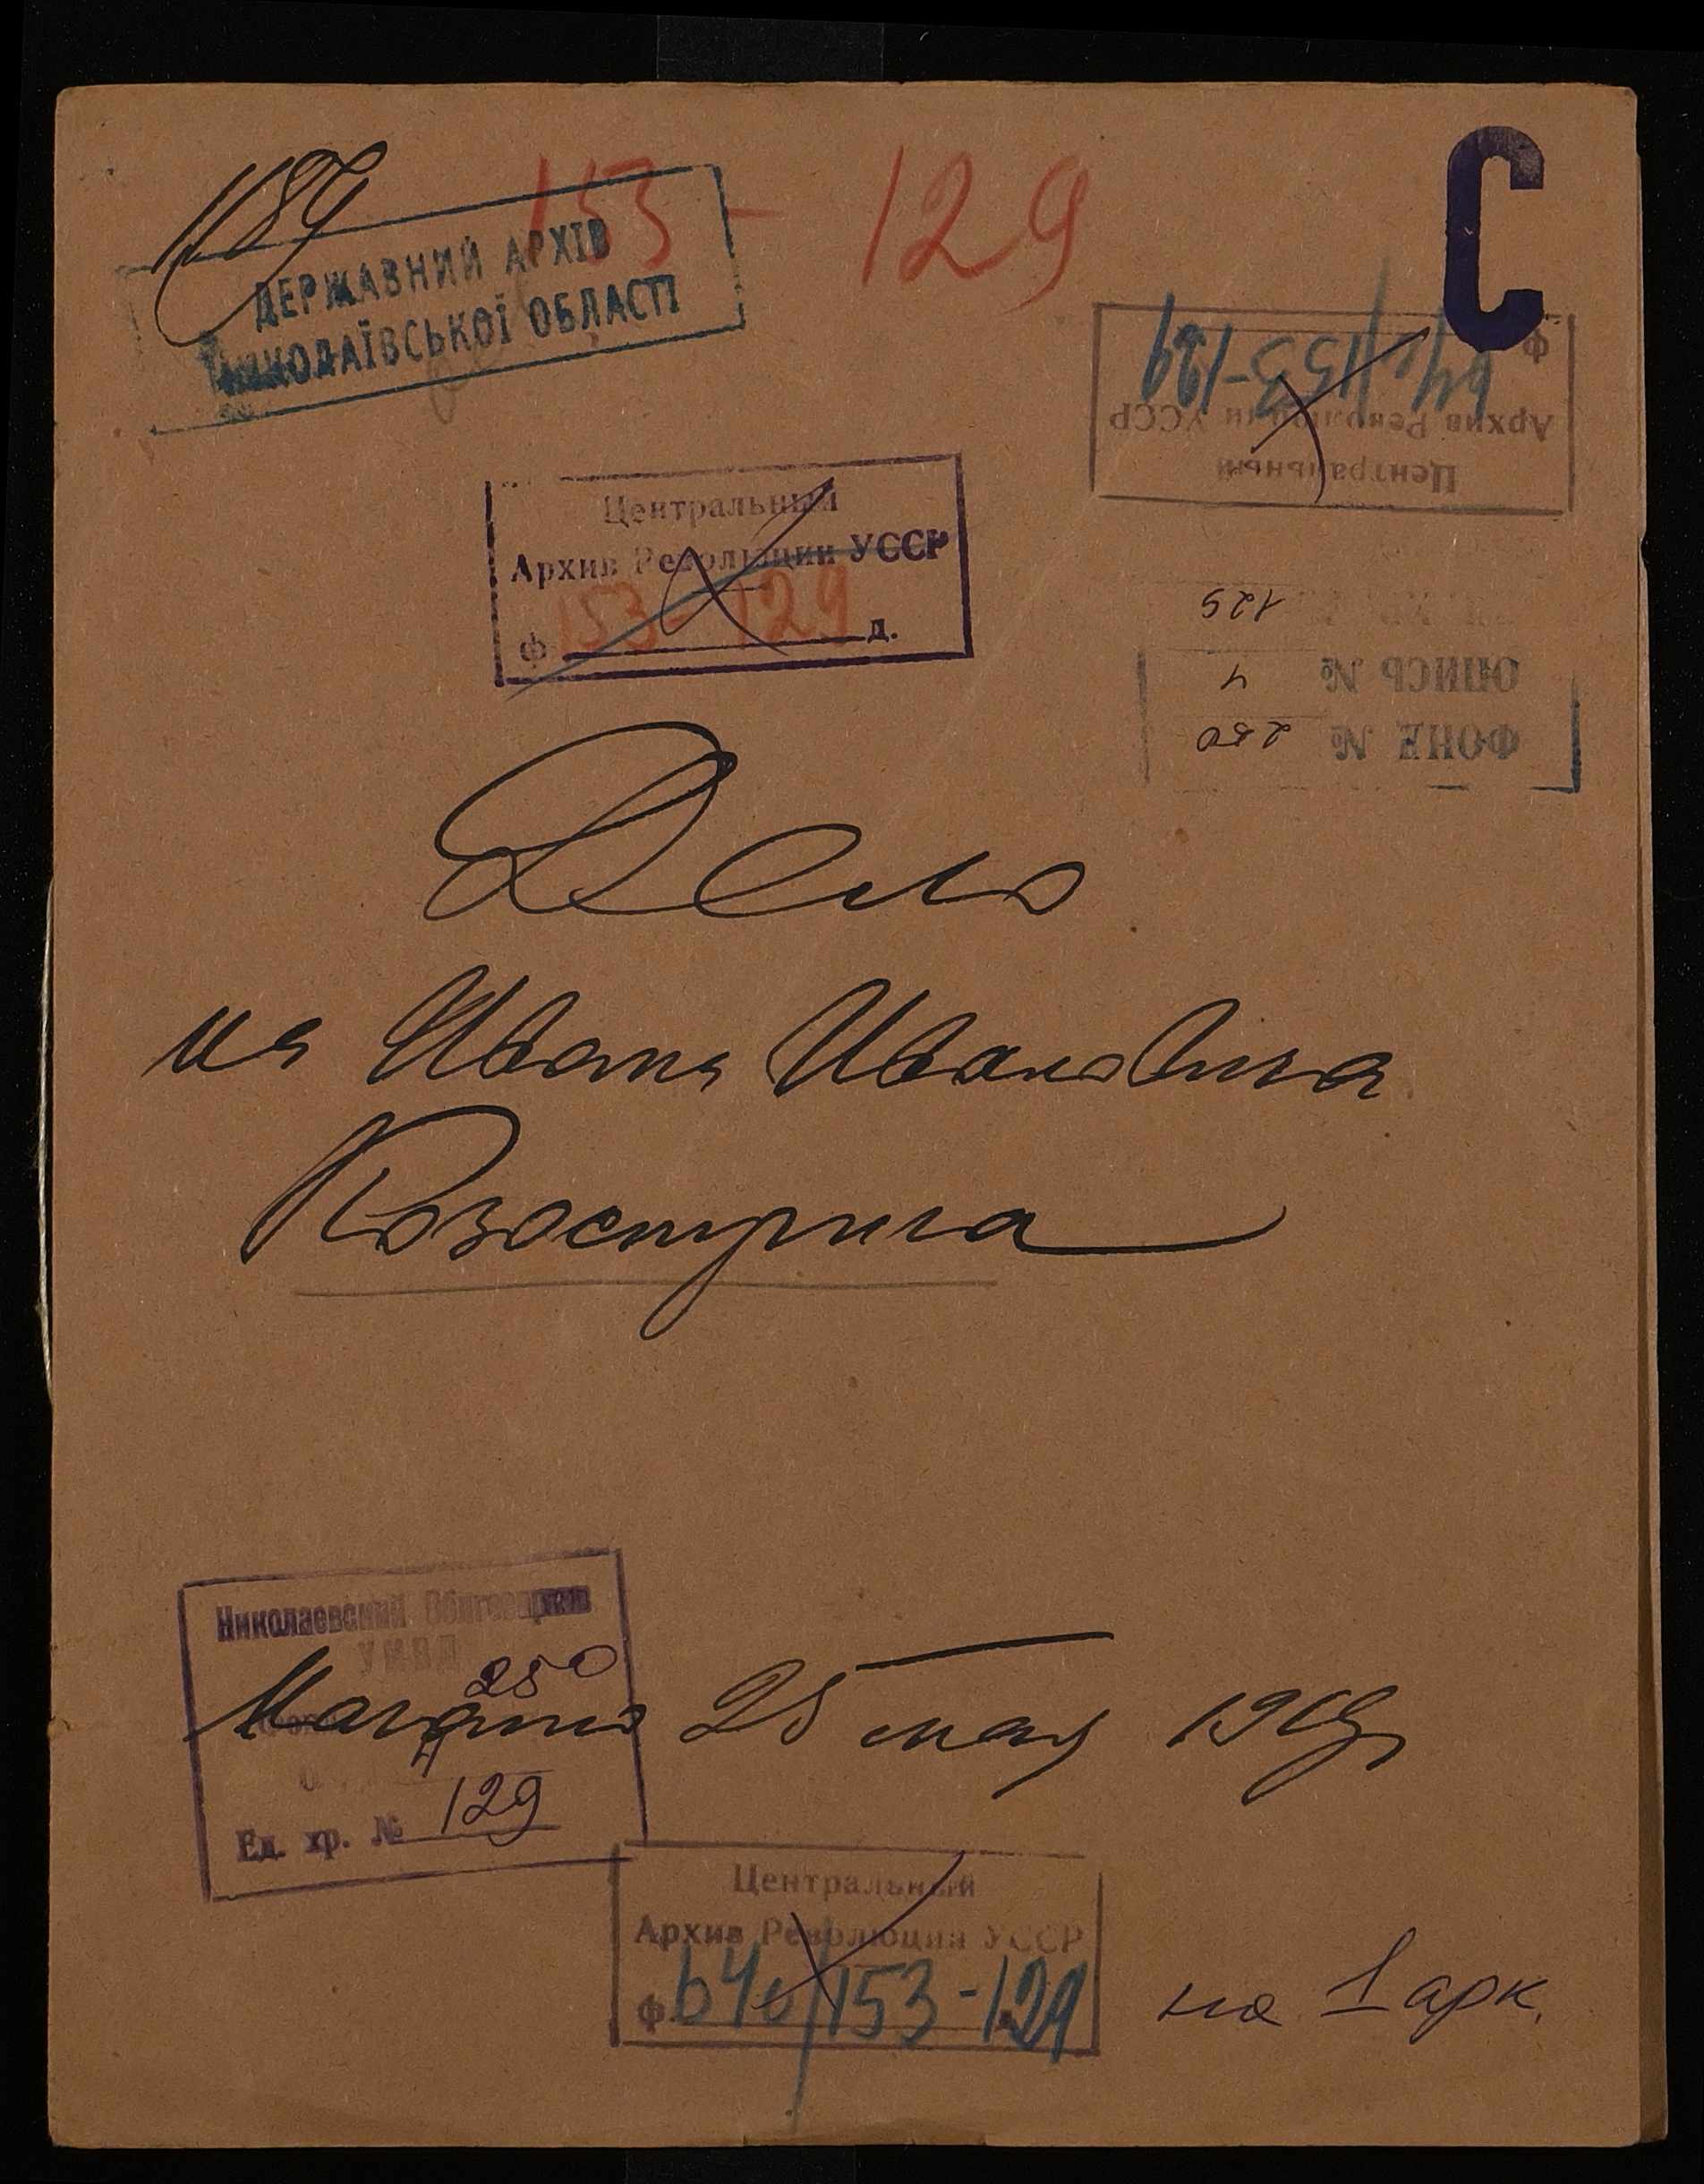 1189
153 - 129
С
ДЕРЖАВНИЙ АРХІВ
МИКОЛАЇВСЬКОЇ ОБЛАСТІ
Центральный
Архив Революции УССР
ф. 640/153-129
Центральный
Архив Революции УССР
ф. 153-129 д.
ФОНД № 250
ОПИСЬ № 4
129
Дело
на Ивана Ивановича
Козострига
Николаевский Облгосархив
УМВД
250
4
Ед. хр. № 129
25 мая 1919 г.
Центральный
Архив Революции УССР
ф. 640/153-129
на 1 арк.